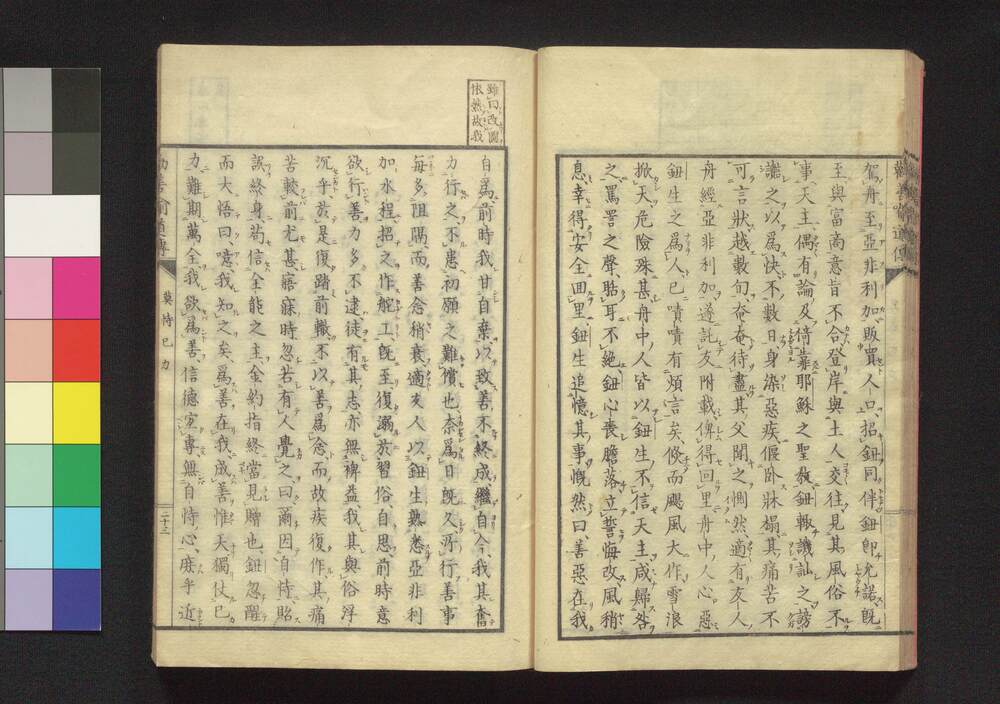 駕舟至亞非利加販賣人口、招鈕同伴鈕卽允諾、旣
至與富商意旨不合登岸與土人交往見其風俗不
事天主偶有論及倚靠耶穌之聖敎鈕輙譏訕之謗
讟之以爲快不數日身染惡疾偃臥牀榻其痛苦不
可言狀越數旬奄奄待盡其父聞之惆然適有友人
舟經亞非利加遂託友附載俾得回里舟中人心惡
鈕生之爲人已嘖嘖有煩言矣倐而颶風大作雪浪
掀天危險殊甚舟中人皆以鈕生不信天主咸歸咎
之罵詈之聲聒耳不絕鈕心喪膽落立誓悔改風稍
息幸得安全回里鈕生追憶其事慨然曰善惡在我
雖曰改圖
依然故我
自爲前時我甘自棄以致善不終成繼自今我其奮
力行之不患初願之難償也奈爲日旣久所行善事
每多阻隔而善念稍衰適友人以鈕生熟悉亞非利
加水程招之作舵工旣至復溺於習俗自思前時意
欲行善力多不逮徒有其志亦無裨益我其與俗浮
沉乎於是復踏前轍不以善爲念而故疾復作其痛
苦較前尤甚寤寐時忽若有人覺之曰爾因自恃貽
誤終身苟信全能之主金約指終當見贈也鈕忽醒
而大悟曰噫我知之矣爲善在我成善惟天獨仗己
力難期萬全我欲爲善信德宜專無自恃心庶乎近
莫恃己力
二十三